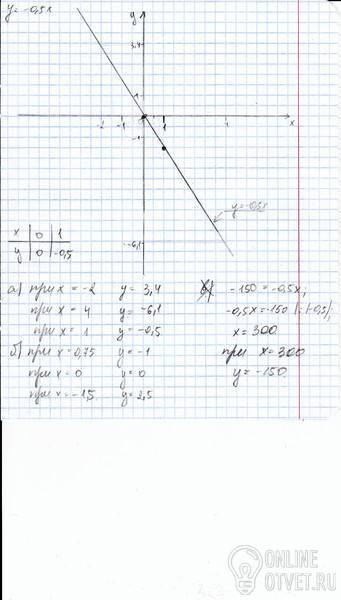 y = -0,5x
y
3,4
1
-2 -1 1 4 x
-1
y=-0,5x
-6,1
x | 0 | 1
y | 0 | -0,5
а) при x = -2 y = 3,4
при x = 4 y = -6,1
при x = 1 y = -0,5
б) при x = 0,75 y = -1
при x = 0 y = 0
при x = -1,5 y = 2,5
-150 = -0,5x;
-0,5x = -150 |:(-0,5);
x = 300
при x = 300
y = -150.
ONLINE
OTVET.RU